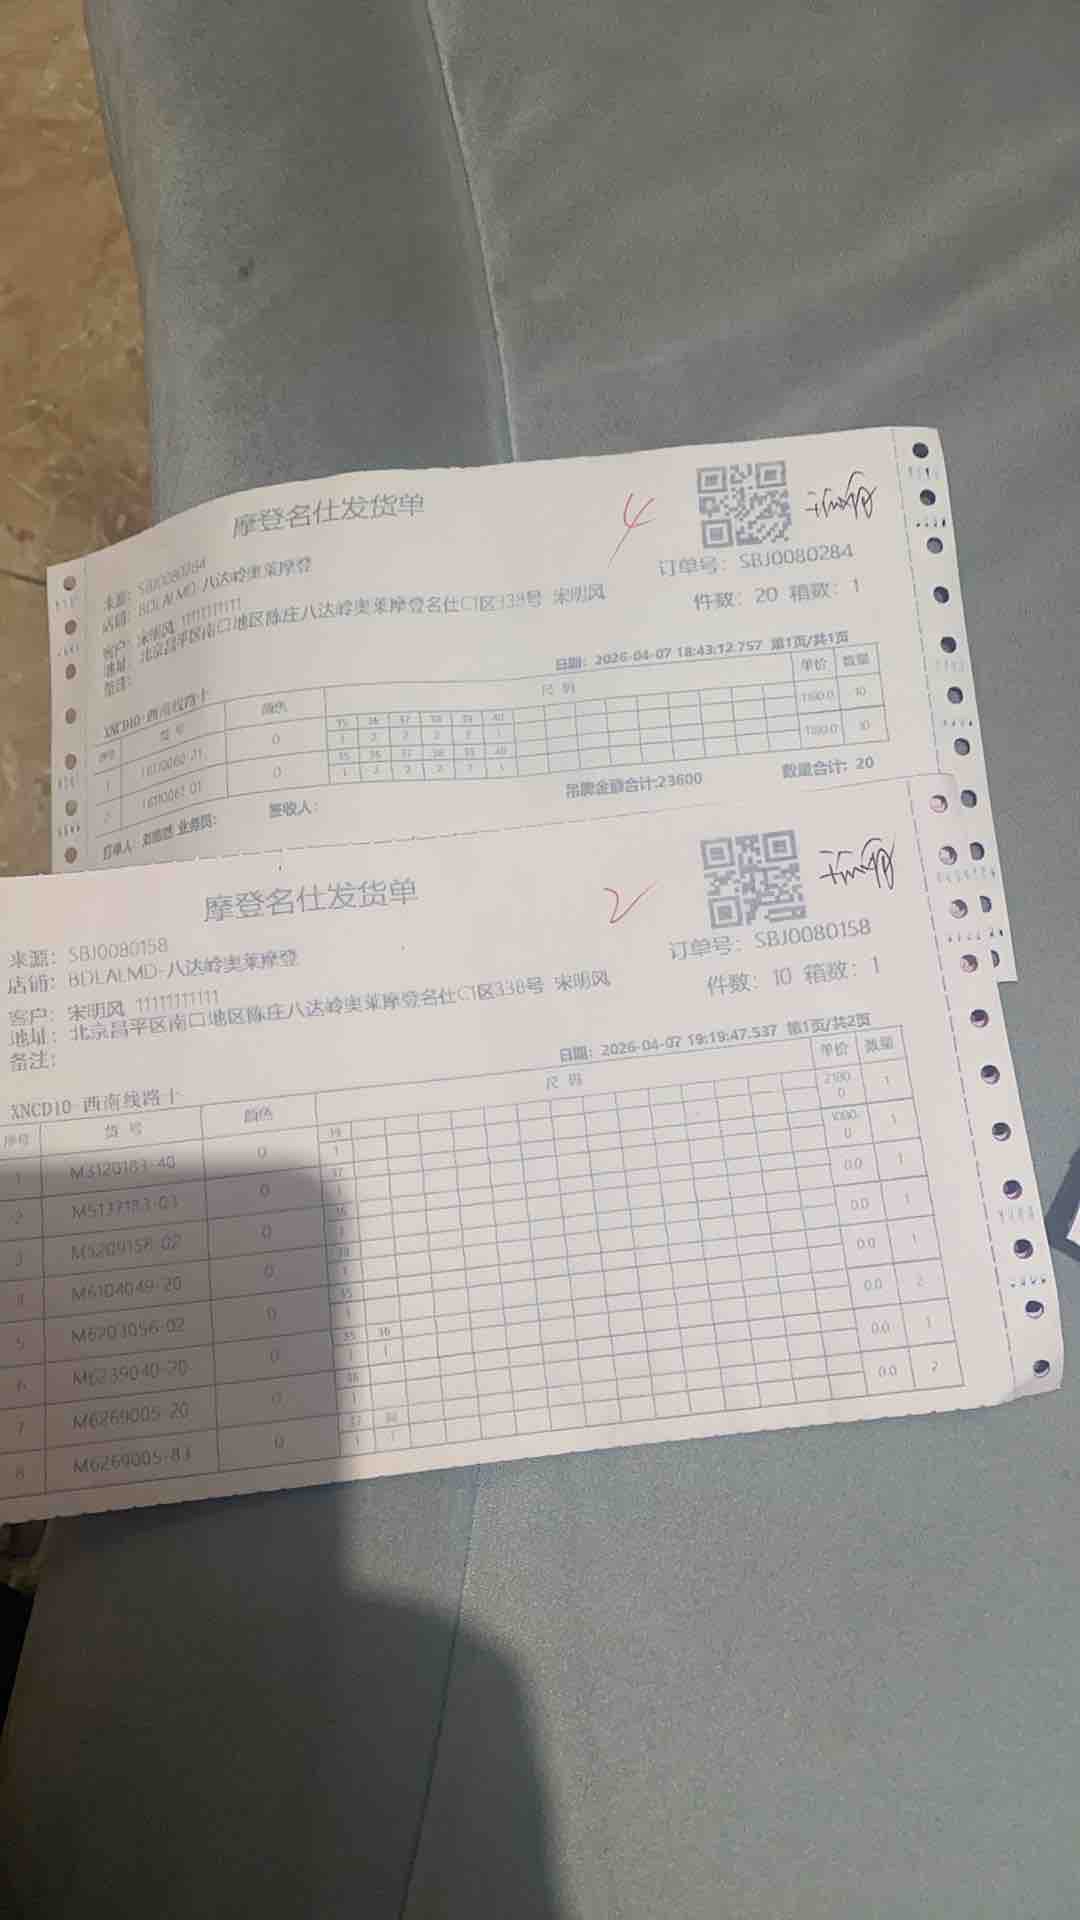 摩登名仕发货单
4
来源: SBJ0080284
店铺: BDLALMD-八达岭奥莱摩登
客户: 宋明风 11111111111
地址: 北京昌平区南口地区陈庄八达岭奥莱摩登名仕C1区339号 宋明风
备注:
订单号: SBJ0080284
件数: 20 箱数: 1
日期: 2026-04-07 18:43:12.757 第1页/共1页
XNCD10-西南线路十
序号 货号 颜色 尺码 单价 数量
35 36 37 38 39 40
1 0 1 2 2 2 2 1 1180.0 10
35 36 37 38 39 40
2 0 1 2 2 2 2 1 1180.0 10
订单人: 业务员: 签收人: 吊牌金额合计:23600 数量合计: 20
摩登名仕发货单
2
来源: SBJ0080158
店铺: BDLALMD-八达岭奥莱摩登
客户: 宋明风 11111111111
地址: 北京昌平区南口地区陈庄八达岭奥莱摩登名仕C1区338号 宋明风
备注:
订单号: SBJ0080158
件数: 10 箱数: 1
日期: 2026-04-07 19:19:47.537 第1页/共2页
XNCD10-西南线路十
序号 货号 颜色 尺码 单价 数量
1 M3120183-40 0 1 1
2 M5137183-03 0 37 1 1
3 M5209158-02 0 1 0.0 1
4 M6104049-20 0 1 0.0 1
5 M6203056-02 0 35 1 0.0 1
6 M6239040-20 0 35 36 1 1 0.0 2
7 M6269005-20 0 1 0.0 1
8 M6269005-83 0 37 38 1 1 0.0 2